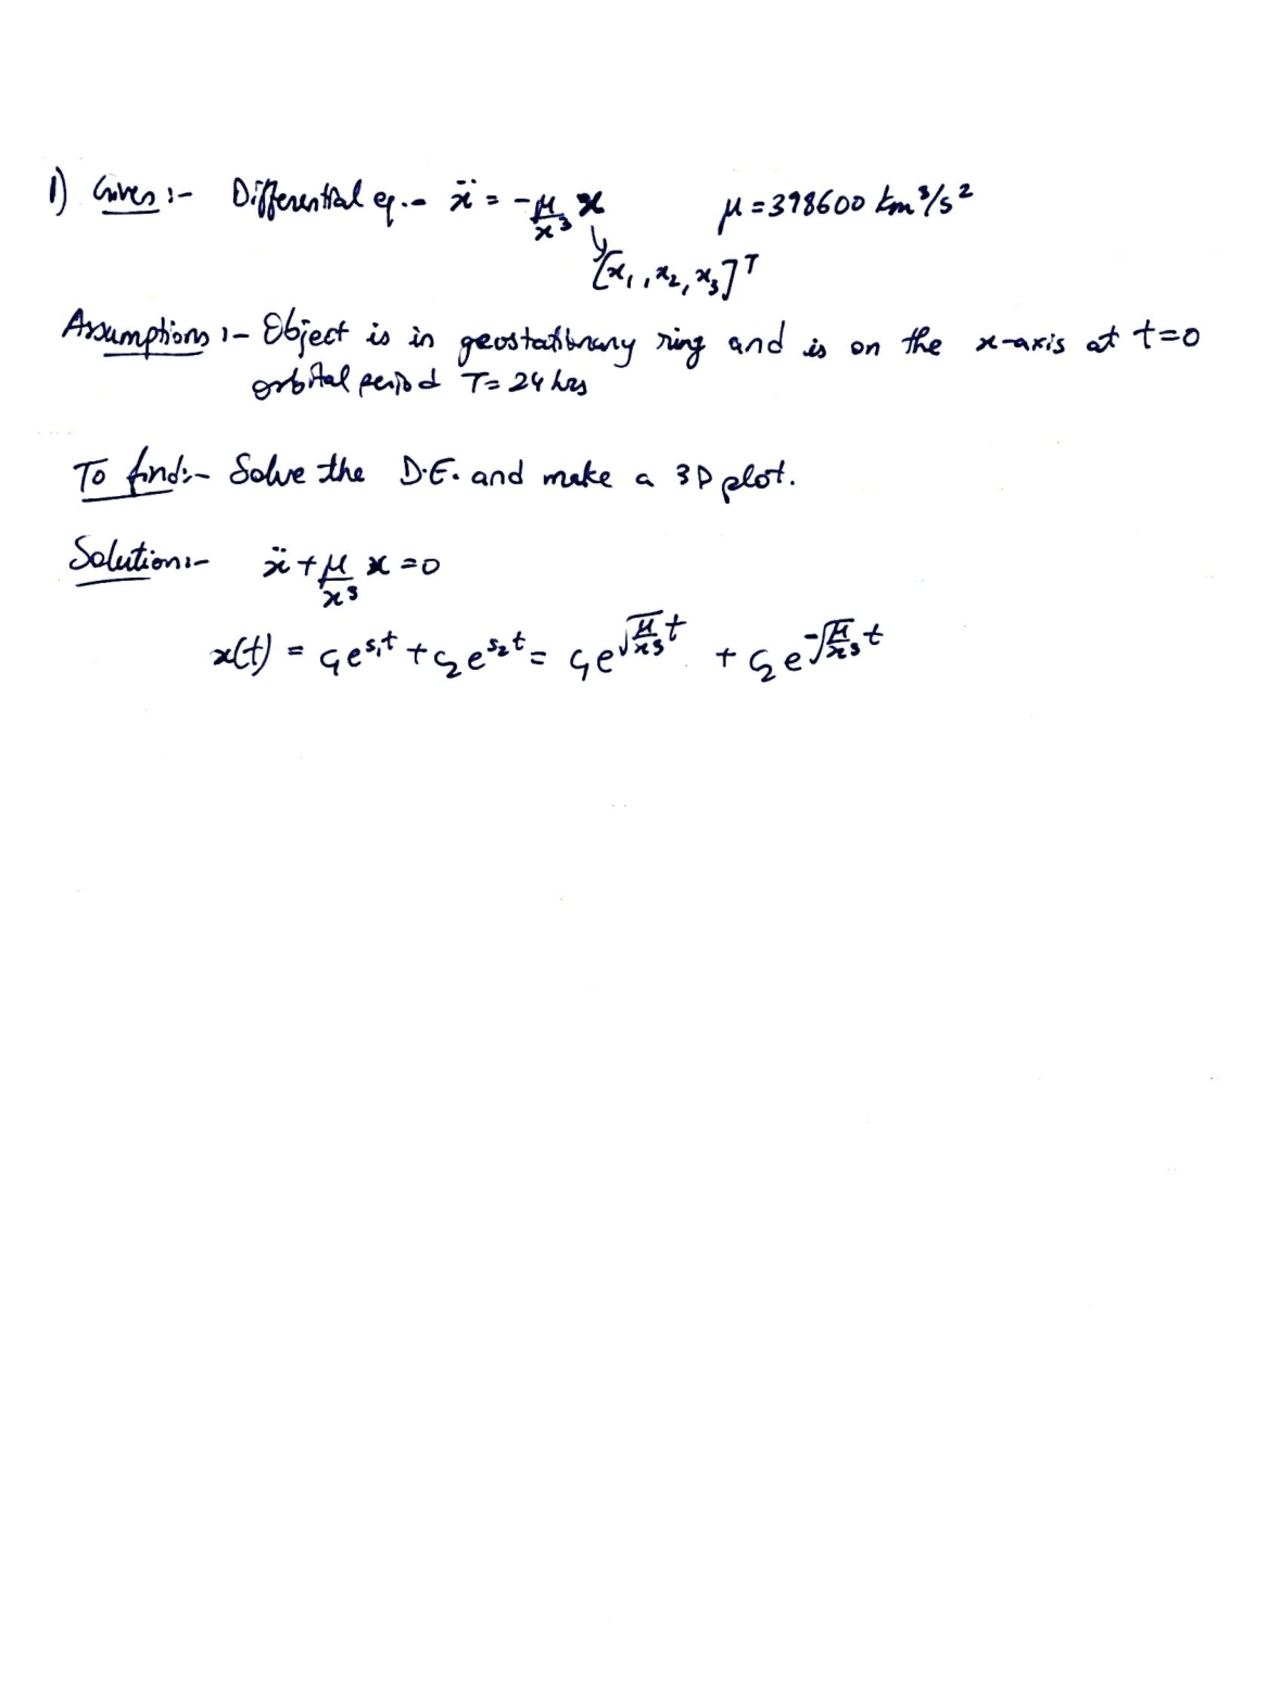 1) Given :- Differential eq.- ẍ = -μ/x³ x     μ = 398600 km³/s²
[x₁, x₂, x₃]ᵀ
Assumptions :- Object is in geostationary ring and is on the x-axis at t=0
orbital period T= 24 hrs
To find:- Solve the D.E. and make a 3D plot.
Solution:- ẍ + μ/x³ x = 0
x(t) = c₁e^{s₁t} + c₂e^{s₂t} = c₁e^{√(μ/x³) t} + c₂e^{-√(μ/x³) t}